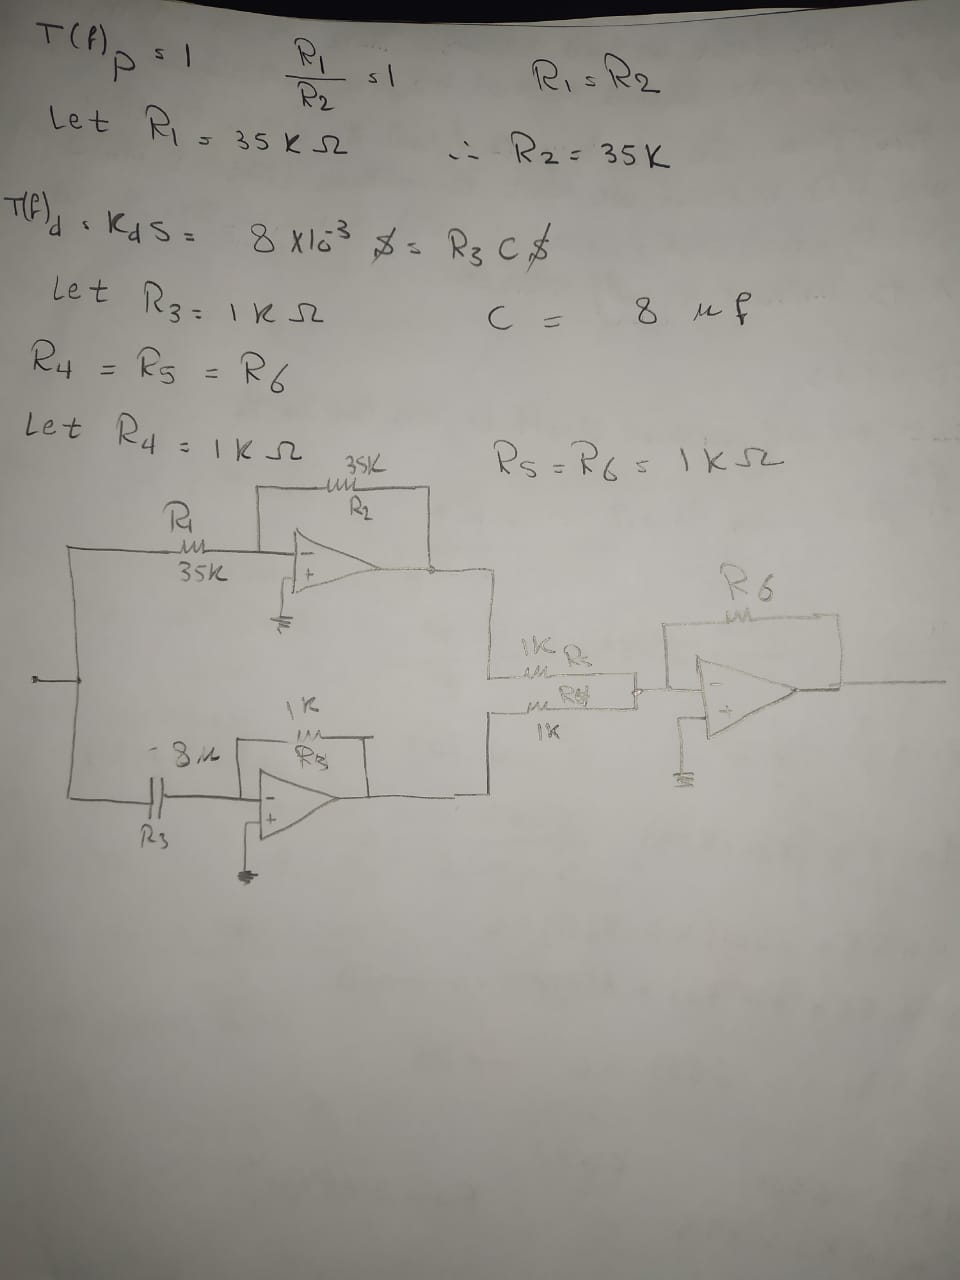 T(f)p = 1 R1/R2 = 1 R1 = R2
Let R1 = 35 K Ω ∴ R2 = 35K
T(f)d = Kd S = 8 x10^-3 $ = R3 C $
Let R3 = 1 K Ω C = 8 μf
R4 = R5 = R6
Let R4 = 1 K Ω R5 = R6 = 1 K Ω
35K
R2
R1
35K
- +
R6
1K
R4
1K
- +
1K
R3
8μ
R3
- +